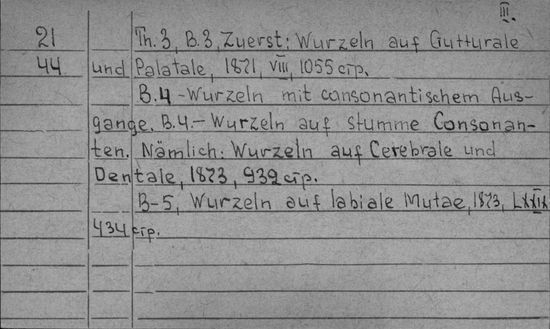 III.
21 Th. 3, B. 3, Zuerst: Wurzeln auf Gutturale
44 und Palatale, 1871, VIII, 1055 стр.
B. 4 - Wurzeln mit consonantischem Aus-
gange. B. 4. - Wurzeln auf stumme Consonan-
ten. Nämlich: Wurzeln auf Cerebrale und
Dentale, 1873, 939 стр.
B-5, Wurzeln auf labiale Mutae, 1873, LXXIX
434 стр.